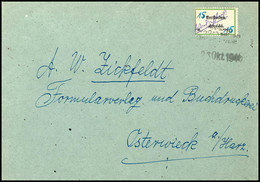 15 15
Okt. 194
A. W. Zickfeldt
Formularverlag und Buchdruckerei
Osterwieck a/Harz.